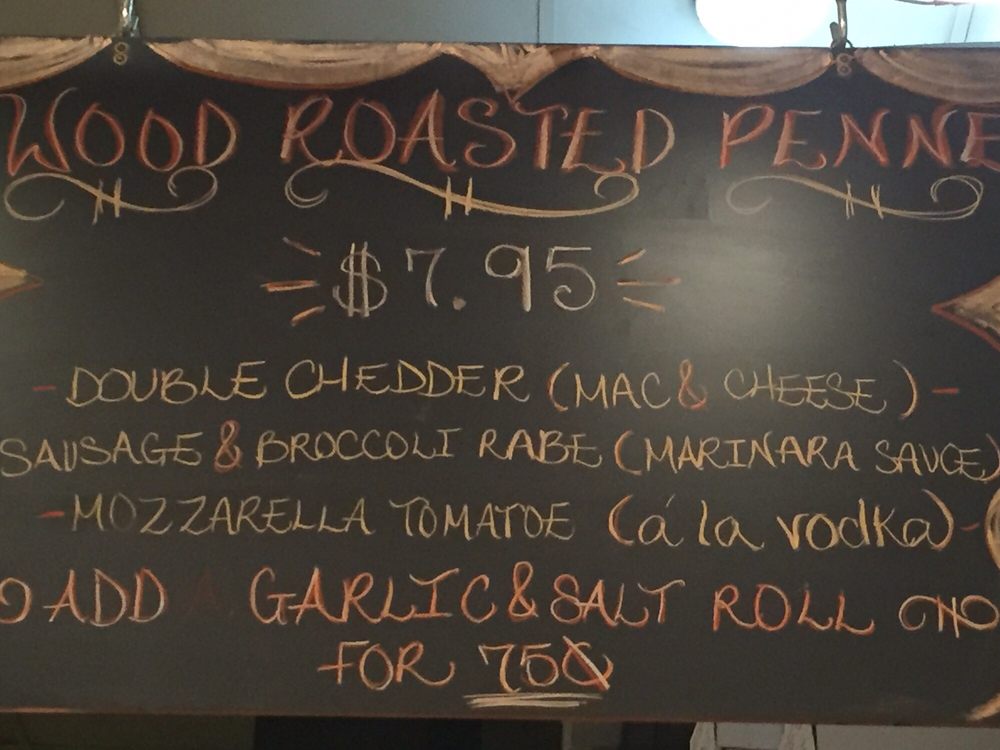 WOOD ROASTED PENNE
$7.95
-DOUBLE CHEDDER (MAC & CHEESE)-
SAUSAGE & BROCCOLI RABE (MARINARA SAUCE)
-MOZZARELLA TOMATOE (á la vodka)-
ADD A GARLIC & SALT ROLL
FOR 75¢